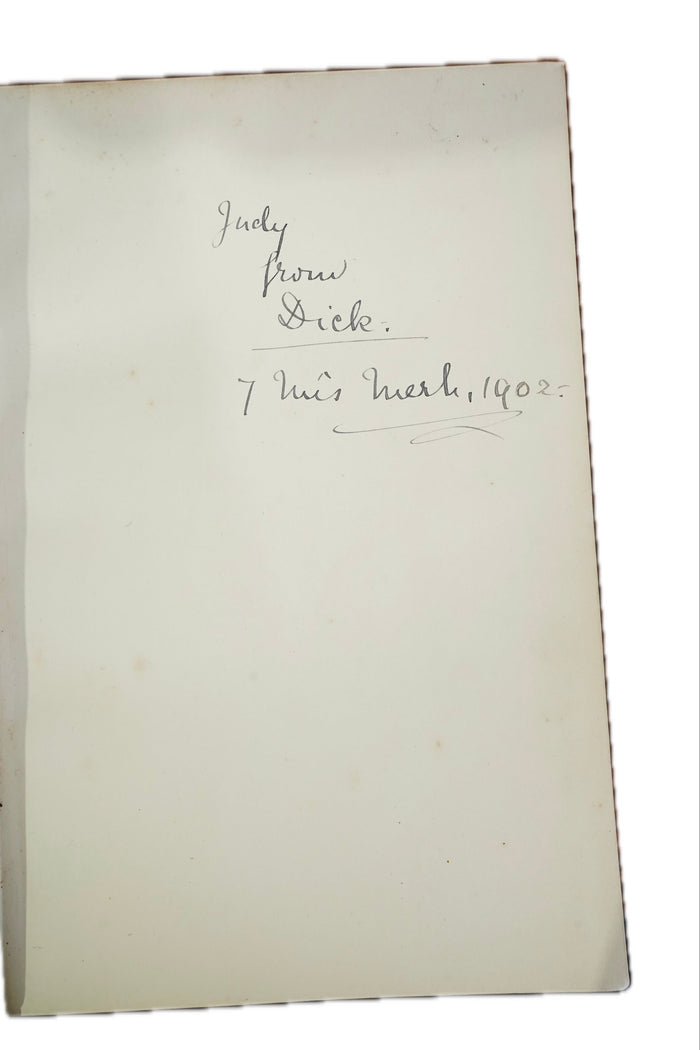 Judy
from
Dick.
7 Mîs Merh, 1902.